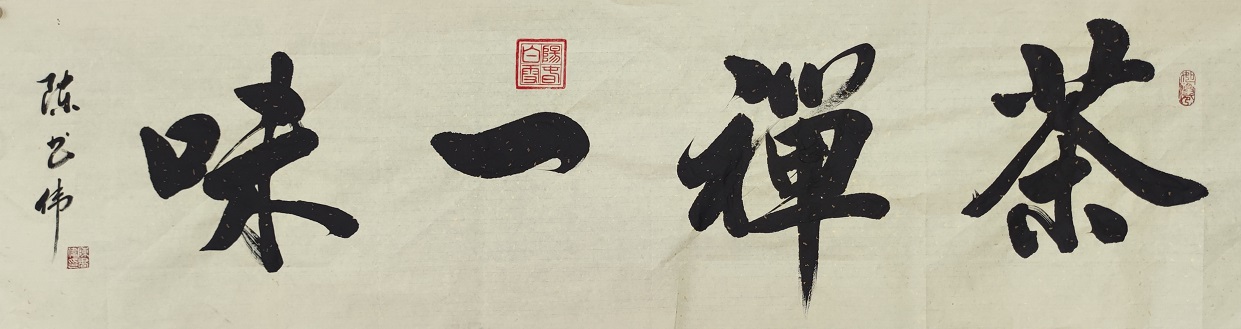 茶禪一味
陽春白雪
陈书伟